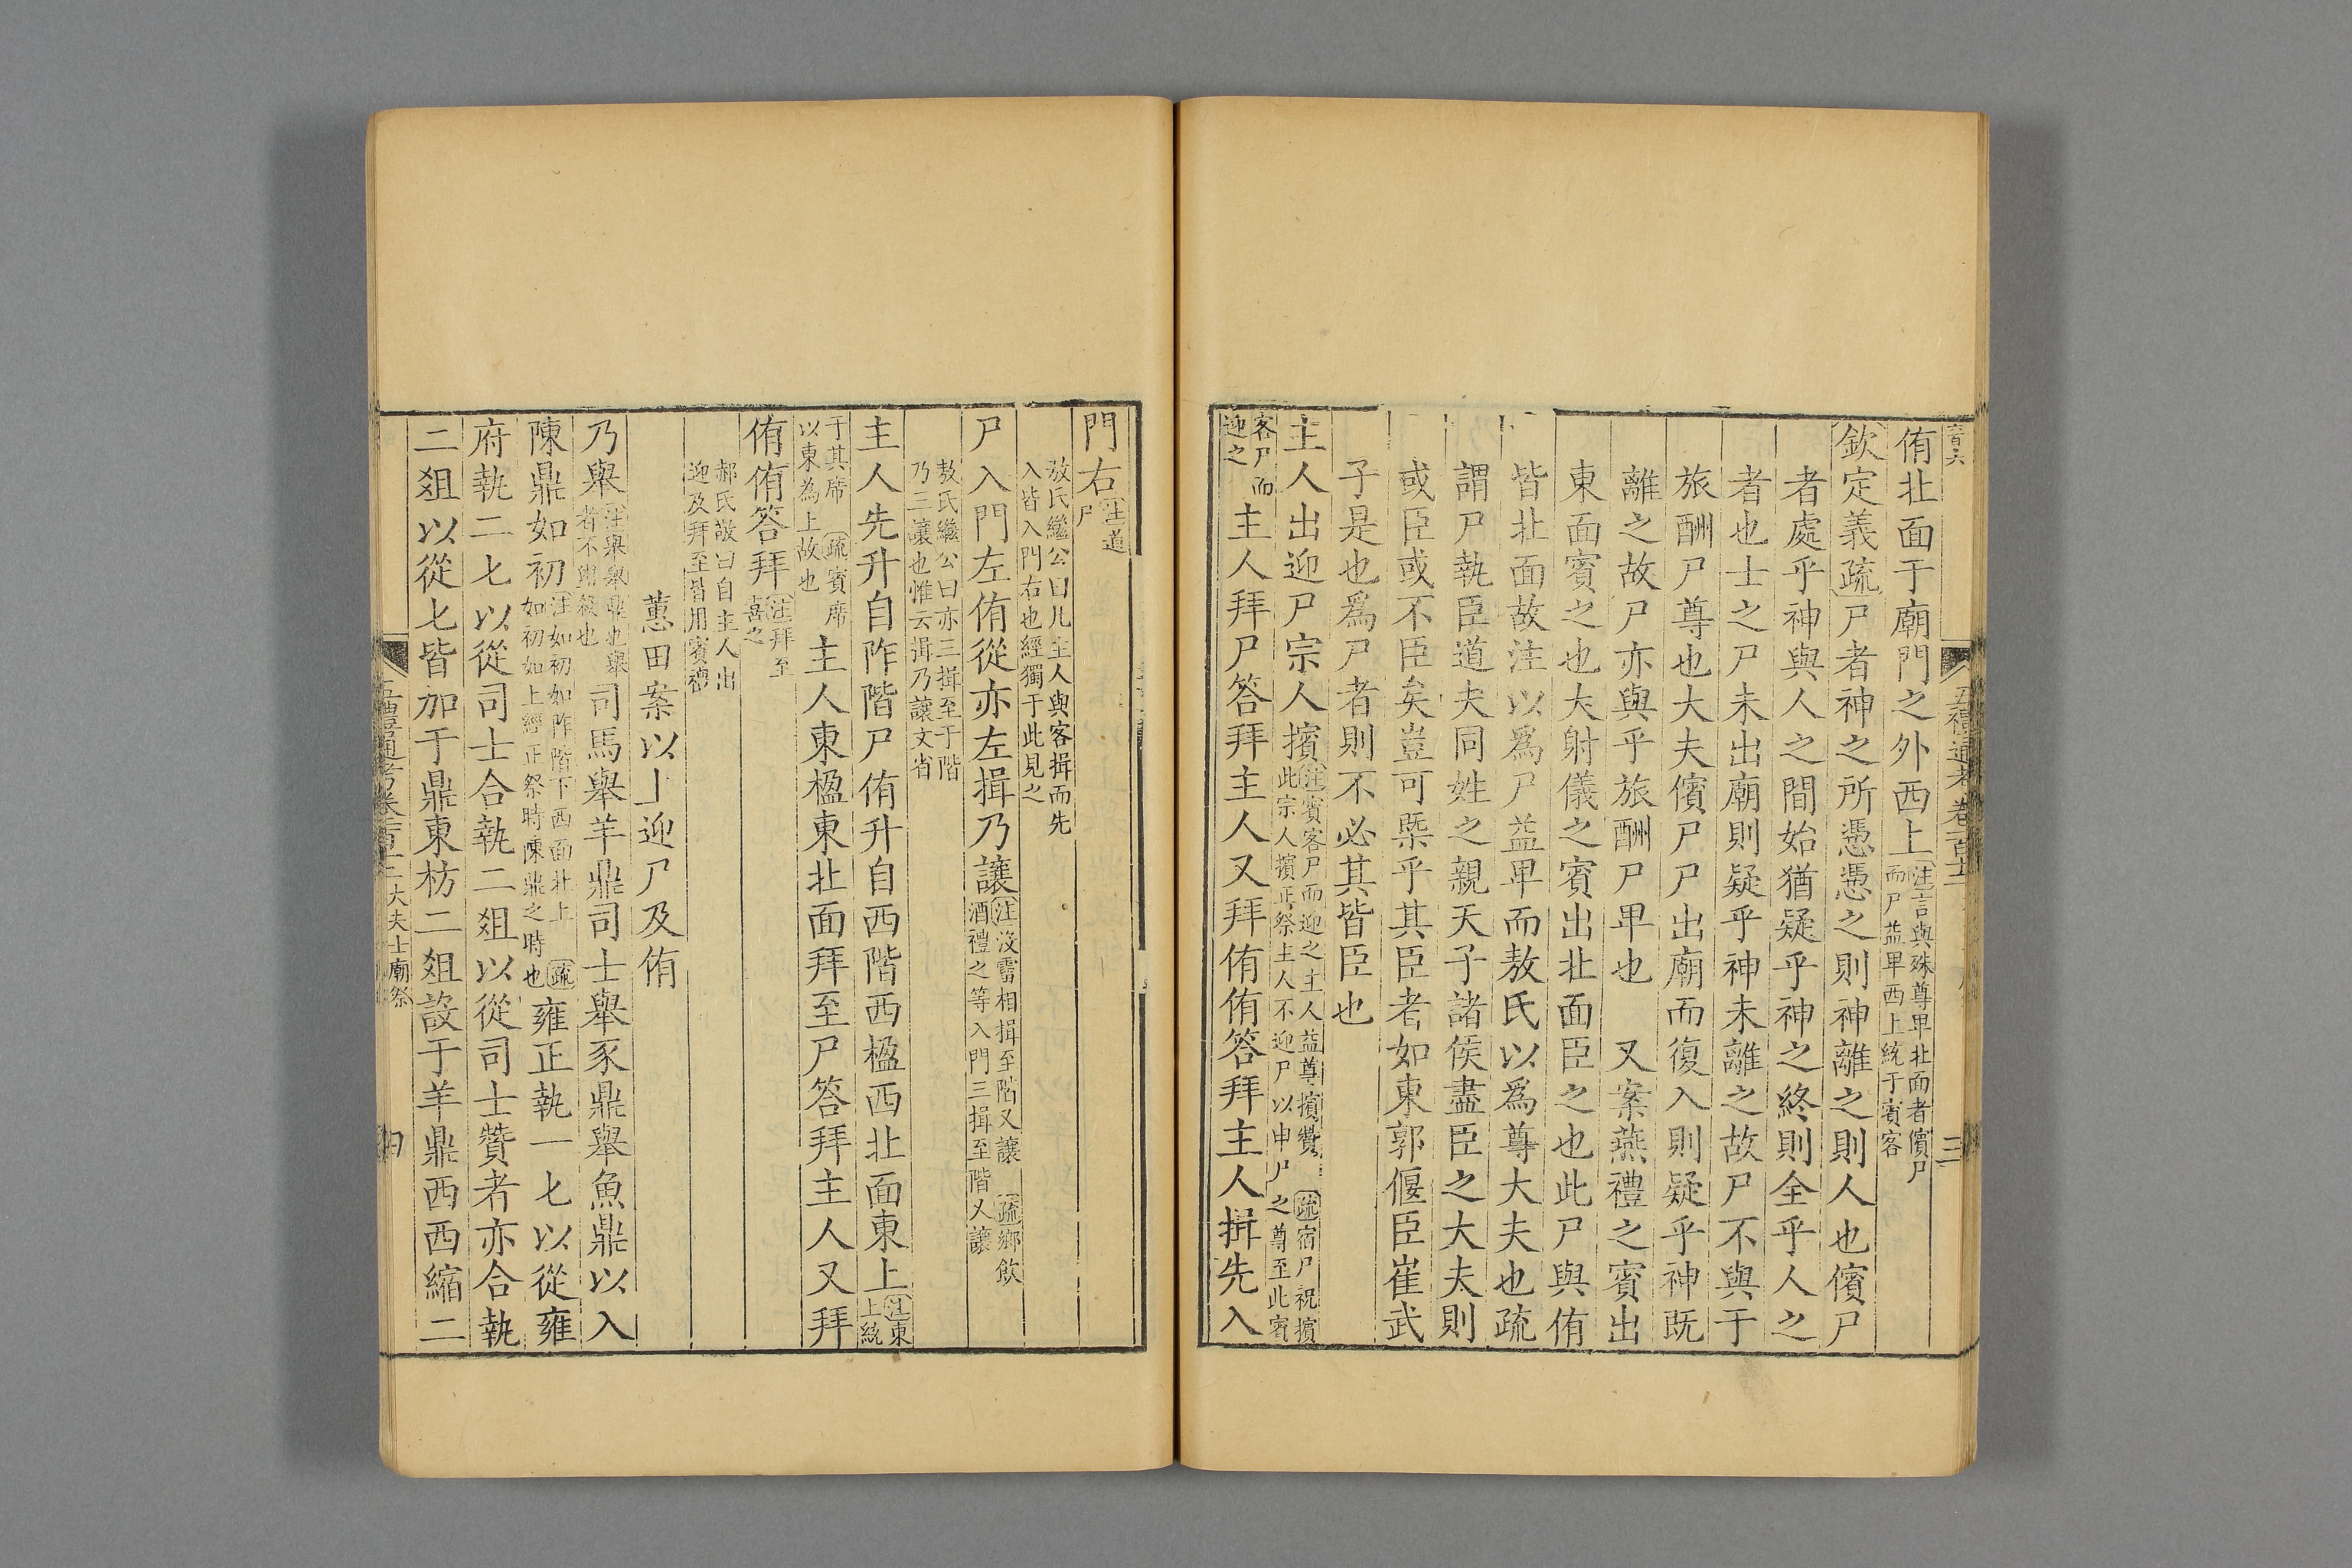 五禮通考卷一百十二 三
侑北面于廟門之外西上注言與殊尊卑北面者儐尸
而尸益卑西上統于賓客
欽定義疏尸者神之所憑憑之則神離之則人也儐尸
者處乎神與人之間始猶疑乎神之終則全乎人之
者也士之尸未出廟則疑乎神未離之故尸不與于
旅酬尸尊也大夫儐尸尸出廟而復入則疑乎神既
離之故尸亦與乎旅酬尸卑也 又案燕禮之賓出
東面賓之也大射儀之賓出北面臣之也此尸與侑
皆北面故注以爲尸益卑而敖氏以爲尊大夫也疏
謂尸執臣道夫同姓之親天子諸侯盡臣之大夫則
或臣或不臣矣豈可槩乎其臣者如東郭偃臣崔武
子是也爲尸者則不必其皆臣也
主人出迎尸宗人擯注賓客尸而迎之主人益尊擯贊 疏宿尸祝擯
此宗人擯正祭主人不迎尸以申尸之尊至此賓
客尸而
迎之 主人拜尸答拜主人又拜侑侑答拜主人揖先入
門右注道
尸
敖氏繼公曰凡主人與客揖而先
入皆入門右也經獨于此見之
尸入門左侑從亦左揖乃讓注沒霤相揖至階又讓 疏鄉飮
酒禮之等入門三揖至階又讓
敖氏繼公曰亦三揖至于階
乃三讓也惟云揖乃讓文省
主人先升自阼階尸侑升自西階西楹西北面東上注東
上統
于其席 疏賓席
以東為上故也 主人東楹東北面拜至尸答拜主人又拜
侑侑答拜注拜至
喜之
郝氏敬曰自主人出
迎及拜至皆用賓禮
蕙田案以上迎尸及侑
乃舉注舉舉鼎也舉
者不盥殺也 司馬舉羊鼎司士舉豕鼎舉魚鼎以入
陳鼎如初注如初如阼階下西面北上 疏
如初如上經正祭時陳鼎之時也 雍正執一匕以從雍
府執二匕以從司士合執二俎以從司士贊者亦合執
二俎以從匕皆加于鼎東枋二俎設于羊鼎西西縮二
五禮通考卷一百十二 大夫士廟祭 四